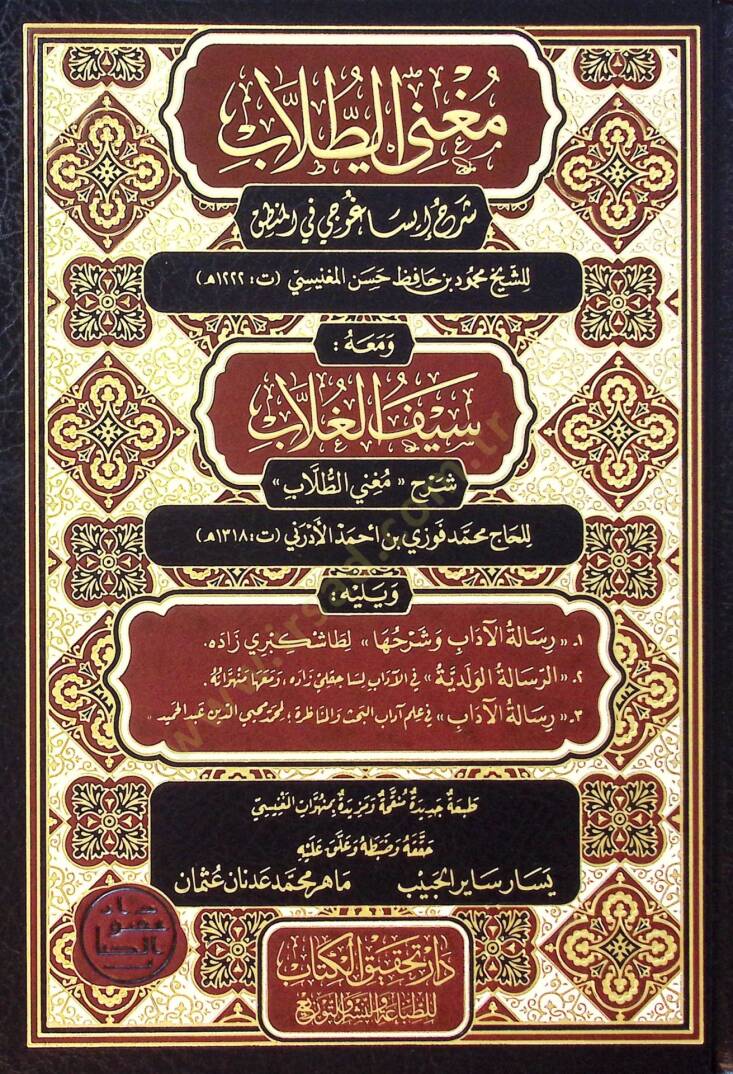 مُغْنِي الطُّلَّابِ
شَرْحُ إِيسَاغُوجِي فِي المَنْطِقِ
لِلشَّيْخِ مَحْمُود بن حَافِظ حَسَن المَغْنِيسِيّ (ت: ١٢٢٢هـ)
وَمَعَهُ:
سَيْفُ الغُلَّابِ
شَرْحِ «مُغْنِي الطُّلَّابِ»
لِلحَاج مُحَمَّد فَوْزِي بن أَحْمَدْ الأَدْرَنِي (ت: ١٣١٨هـ)
وَيَلِيْهِ:
١ـ «رِسَالَةُ الآدَابِ وَشَرْحُهَا» لِطَاشْكُبْرِي زَادَه.
٢ـ «الرِّسَالَةُ الوَلَدِيَّةُ» فِي الآدَابِ لِسَاجَقْلِي زَادَه، وَمَعَهَا مَنْهُوَّاتُهُ.
٣ـ «رِسَالَةُ الآدَابِ» فِي عِلْمِ آدَابِ البَحْثِ وَالمُنَاظَرَةِ؛ لِمُحَمَّد مُحْيِي الدِّين عَبْد الحَمِيد
طَبْعَةٌ جَدِيدَةٌ مُنَقَّحَةٌ وَمَزِيدَةٌ بِمِنْهُوَّاتِ المَغْنِيسِيّ
حَقَّقَهُ وَضَبَطَهُ وَعَلَّقَ عَلَيْهِ
يَسَار سَايِر الحَبِيْب مَاهِر مُحَمَّد عَدْنَان عُثْمَان
دار تحقيق الكتاب
للطباعة والنشر والتوزيع
www.irsad.com.tr